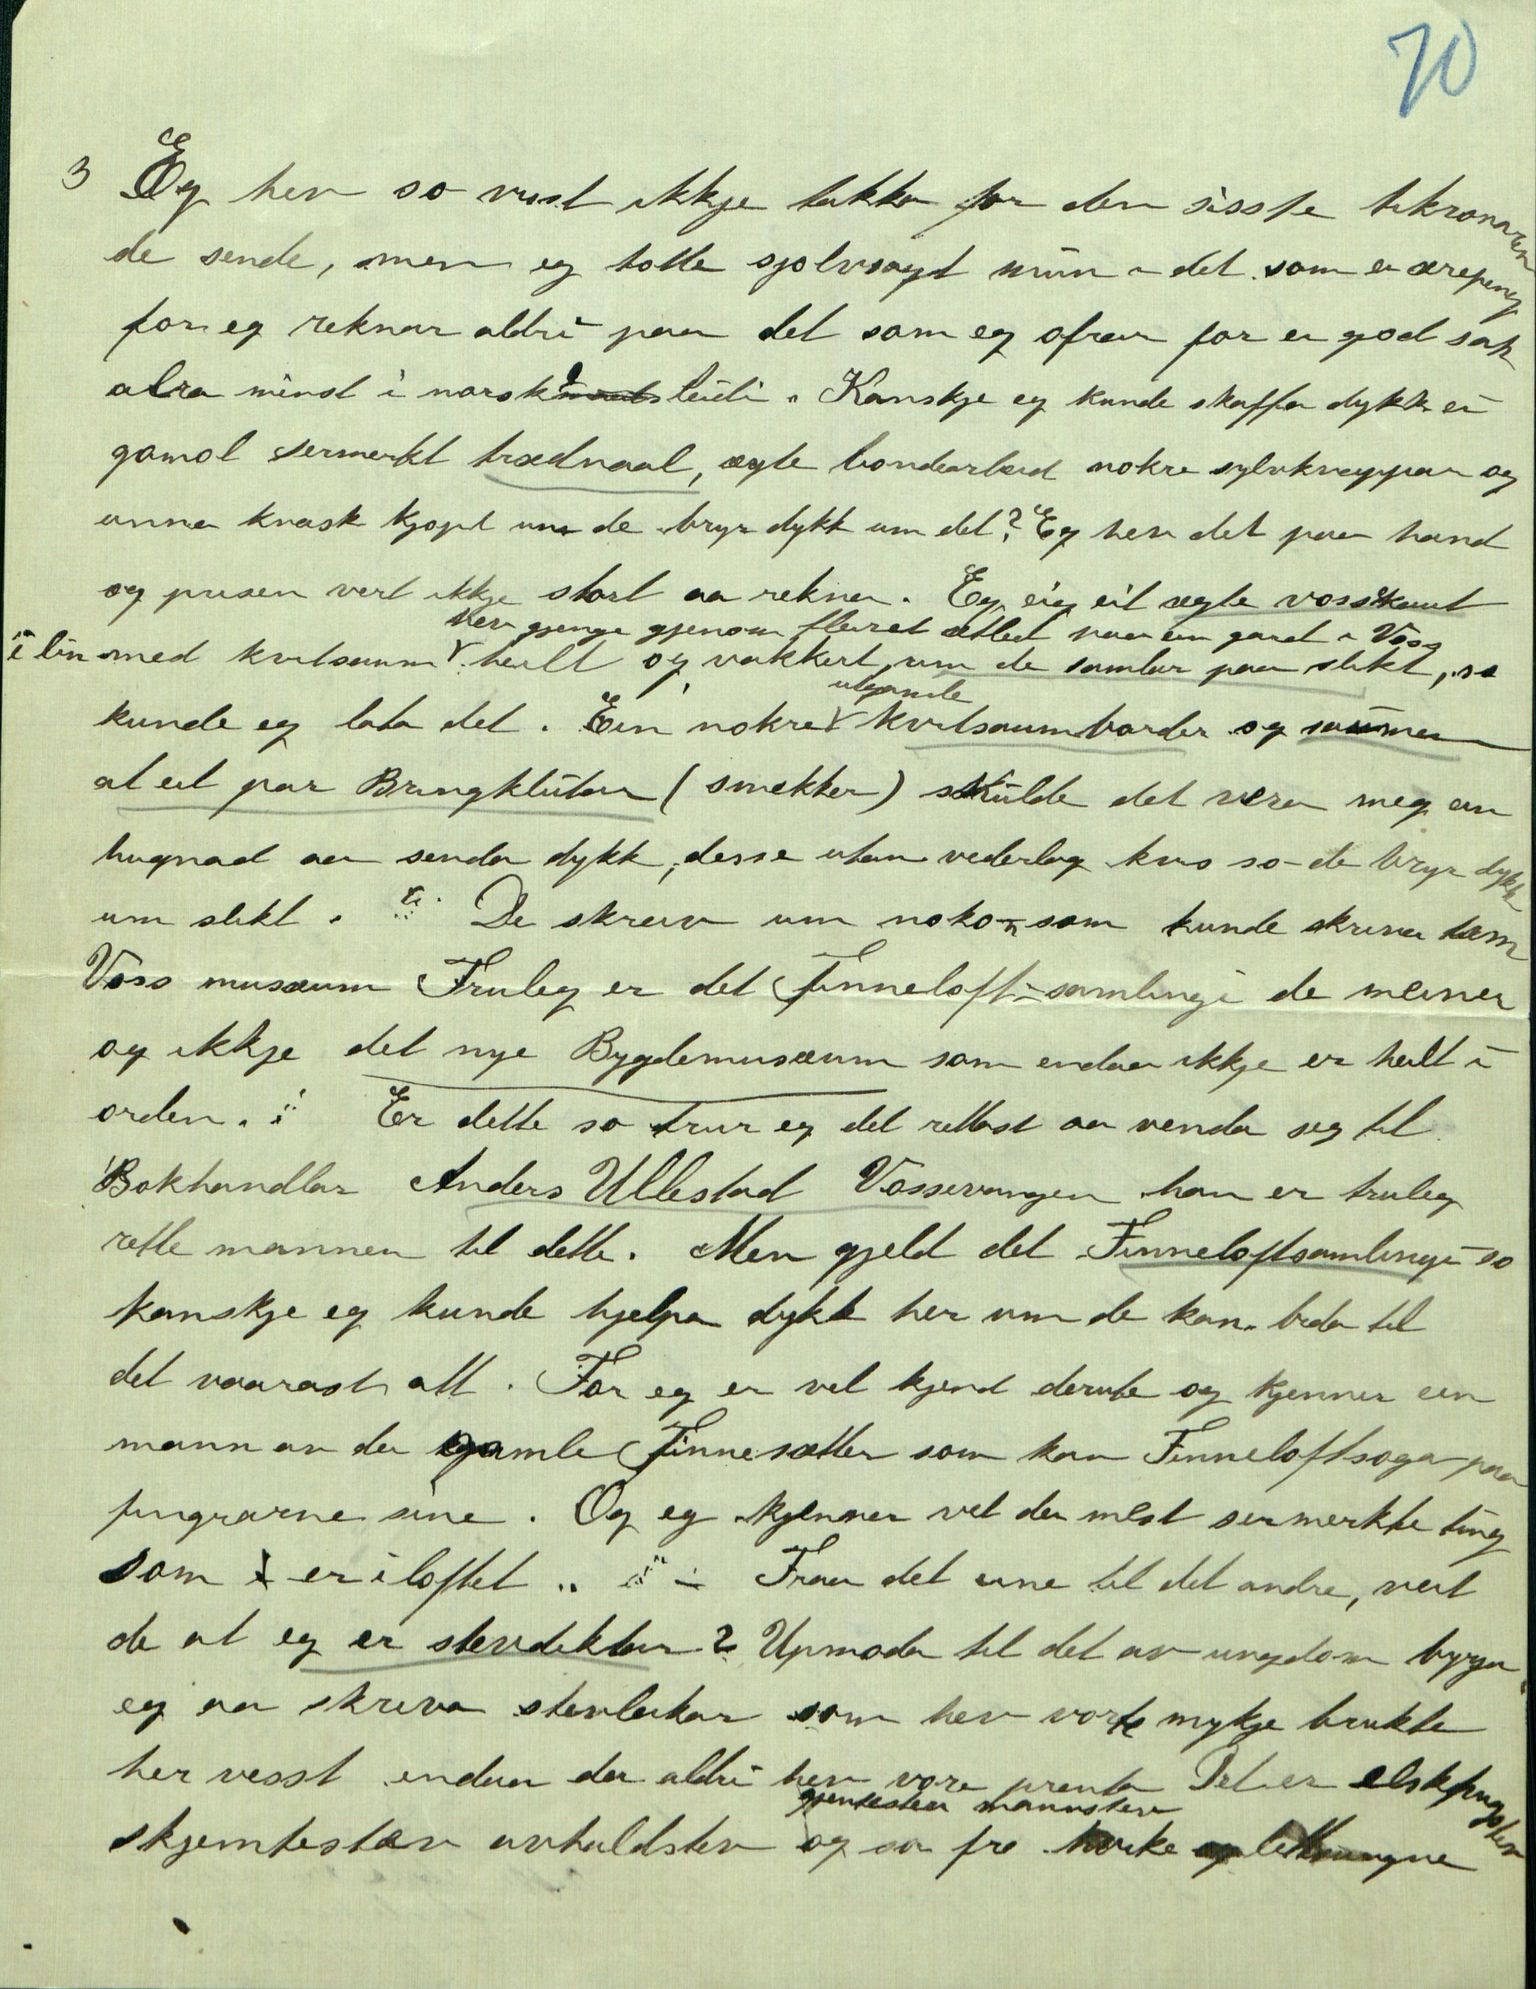 70
3 Eg hev so visst ikkje takka for den sisste tikronaren
de sende, men eg totte sjolvsagt mun i det som ei ærepeng
for eg reknar aldri paa det som eg ofrar for ei god sak
alra minst i norsk leidi. Kanskje eg kunde skaffa dykk ei
gamol sermerkt trædnaal, ægte bondearbeid nokre sylvknappar og
anna knask kjøpt um de bryr dykk um det? Eg hev det paa hand
og prisen vert ikkje stort aa rekna. Eg eig eit ægte vosseskaut
hev gjenge gjenom fleire ætled paa ein gard i Voss
i lin med kvitsaum heilt og vakkert, um de samlar paa slikt, so
utgamle
kunde eg lata det. Ein nokre kvitsaumbordar og saumen
at eit par Bringklutar (smekker) skulde det vera meg ein
hugnad aa senda dykk, desse utan vederlag kvis so de bryr dykk
um slikt. De skreiv um nokon som kunde skriva um
Voss musæum Truleg er det Finneloft-samlingi de meiner
og ikkje det nye Bygdemusæum som endaa ikkje er heilt i
orden. Er dette so trur eg det rettast aa venda seg til
Bokhandlar Anders Ullestad Vossevangen han er truleg
rette mannen til dette. Men gjeld det Finneloftsamlingi so
kanskje eg kunde hjelpa dykk her um de kan bida til
det vaarast att. For eg er vel kjend derute og kjenner ein
mann av der gamle Finnesætten som kan Finneloftsoga paa
fingrarne sine. Og eg kjenner vel dei mest sermerkte ting
som er i loftet .. Fraa det eine til det andre, veit
de at eg er stevdiktar? Upmoda til det av ungdom byrja
eg aa skriva stevleikar som hev vorte mykje brukte
her visst endaa dei aldri hev vore prenta Det er elskhugsstev
gjentestev mannstev
skjemtestev avhaldstev og so fra